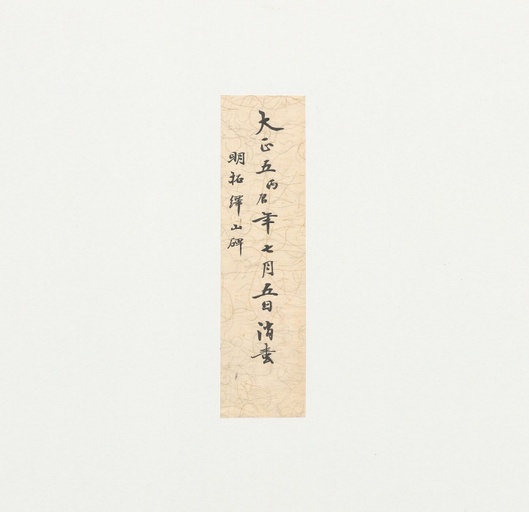 大正五丙辰年七月五日消蚕
明拓繹山碑